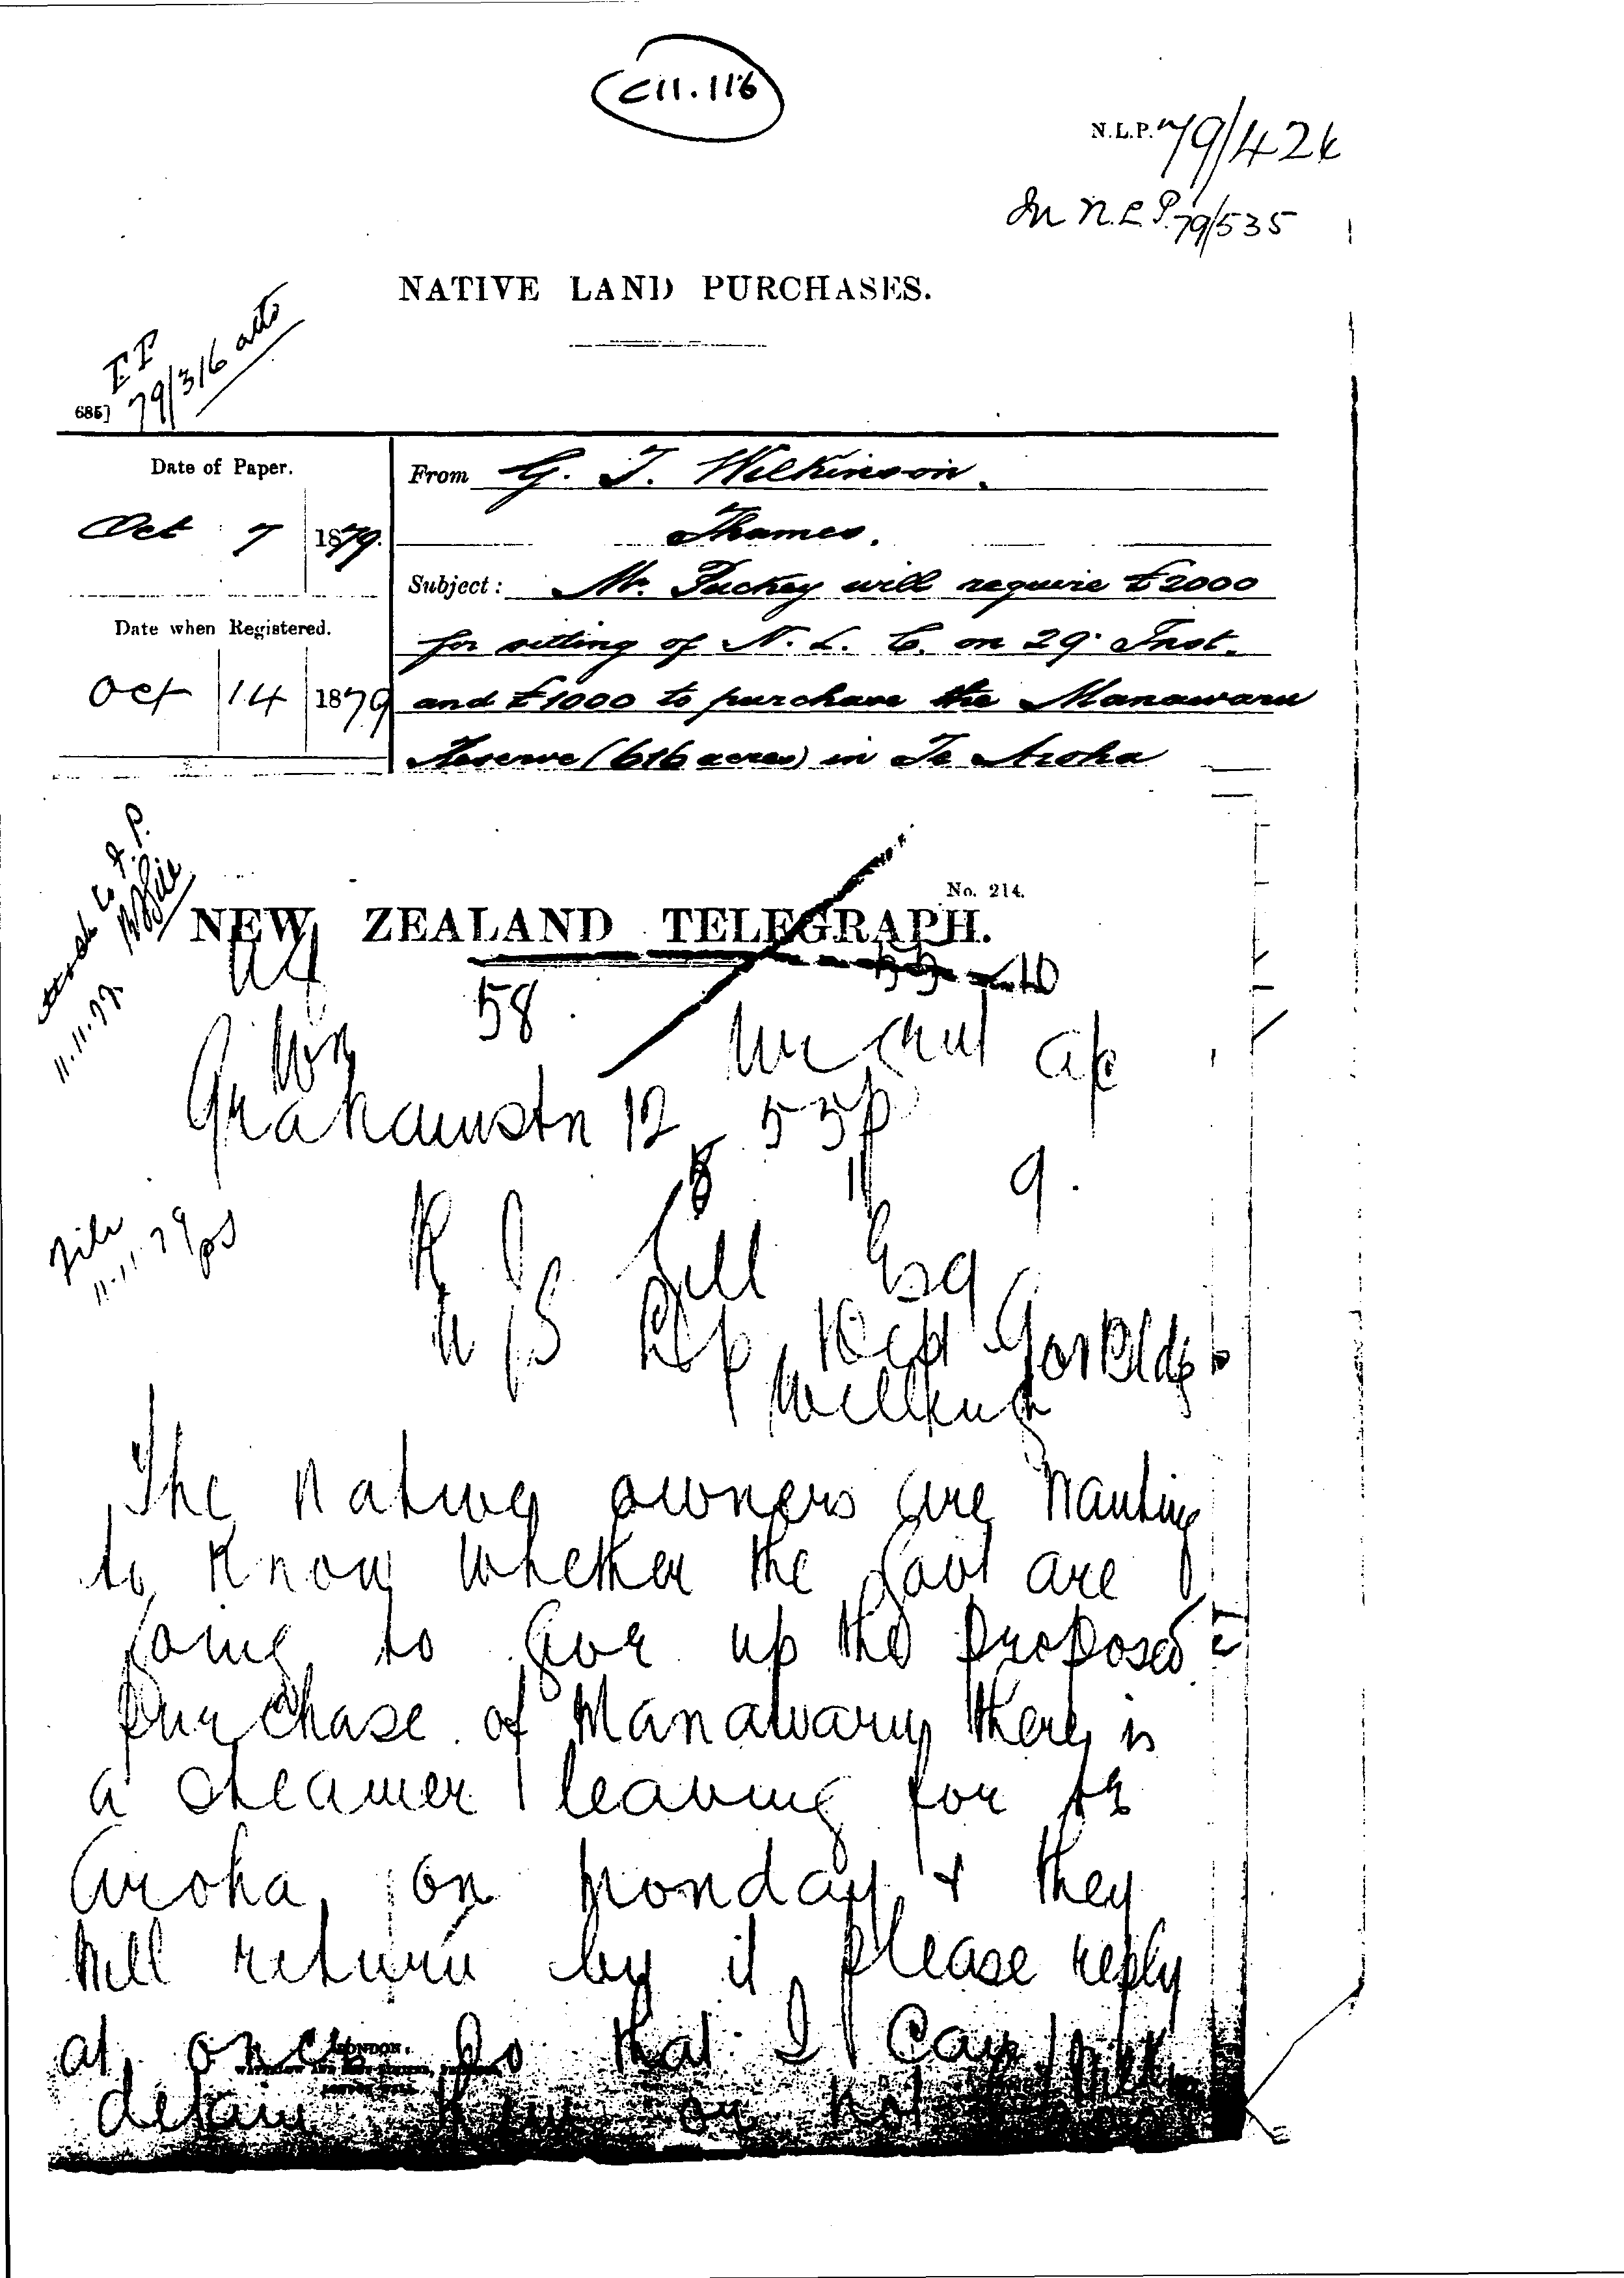 C11.116
N.L.P. 79/42
In N.L.P. 79/535
NATIVE LAND PURCHASES.
79/316
685]
Date of Paper.
Oct 7 1879.
Date when Registered.
Oct 14 1879
From G. T. Wilkinson.
Thames.
Subject: Mr. Puckey will require £2000
for sitting of N. L. C. on 29 Inst.
and £1000 to purchase the Manawaru
Reserve (616 acres) in Te Aroha
11.11.79.
No. 214.
NEW ZEALAND TELEGRAPH.
58
10
Grahamstn 12 55p
8 11 9.
File
11.11.79
R J Gill Esq
U/S Dept Govt Bldgs
The Native owners are wanting
to know whether the Govt are
going to give up the proposed
purchase of Manawaru there is
a steamer leaving for te
Aroha on Monday & they
will return by it please reply
at once so that I can
detain them or not
LONDON